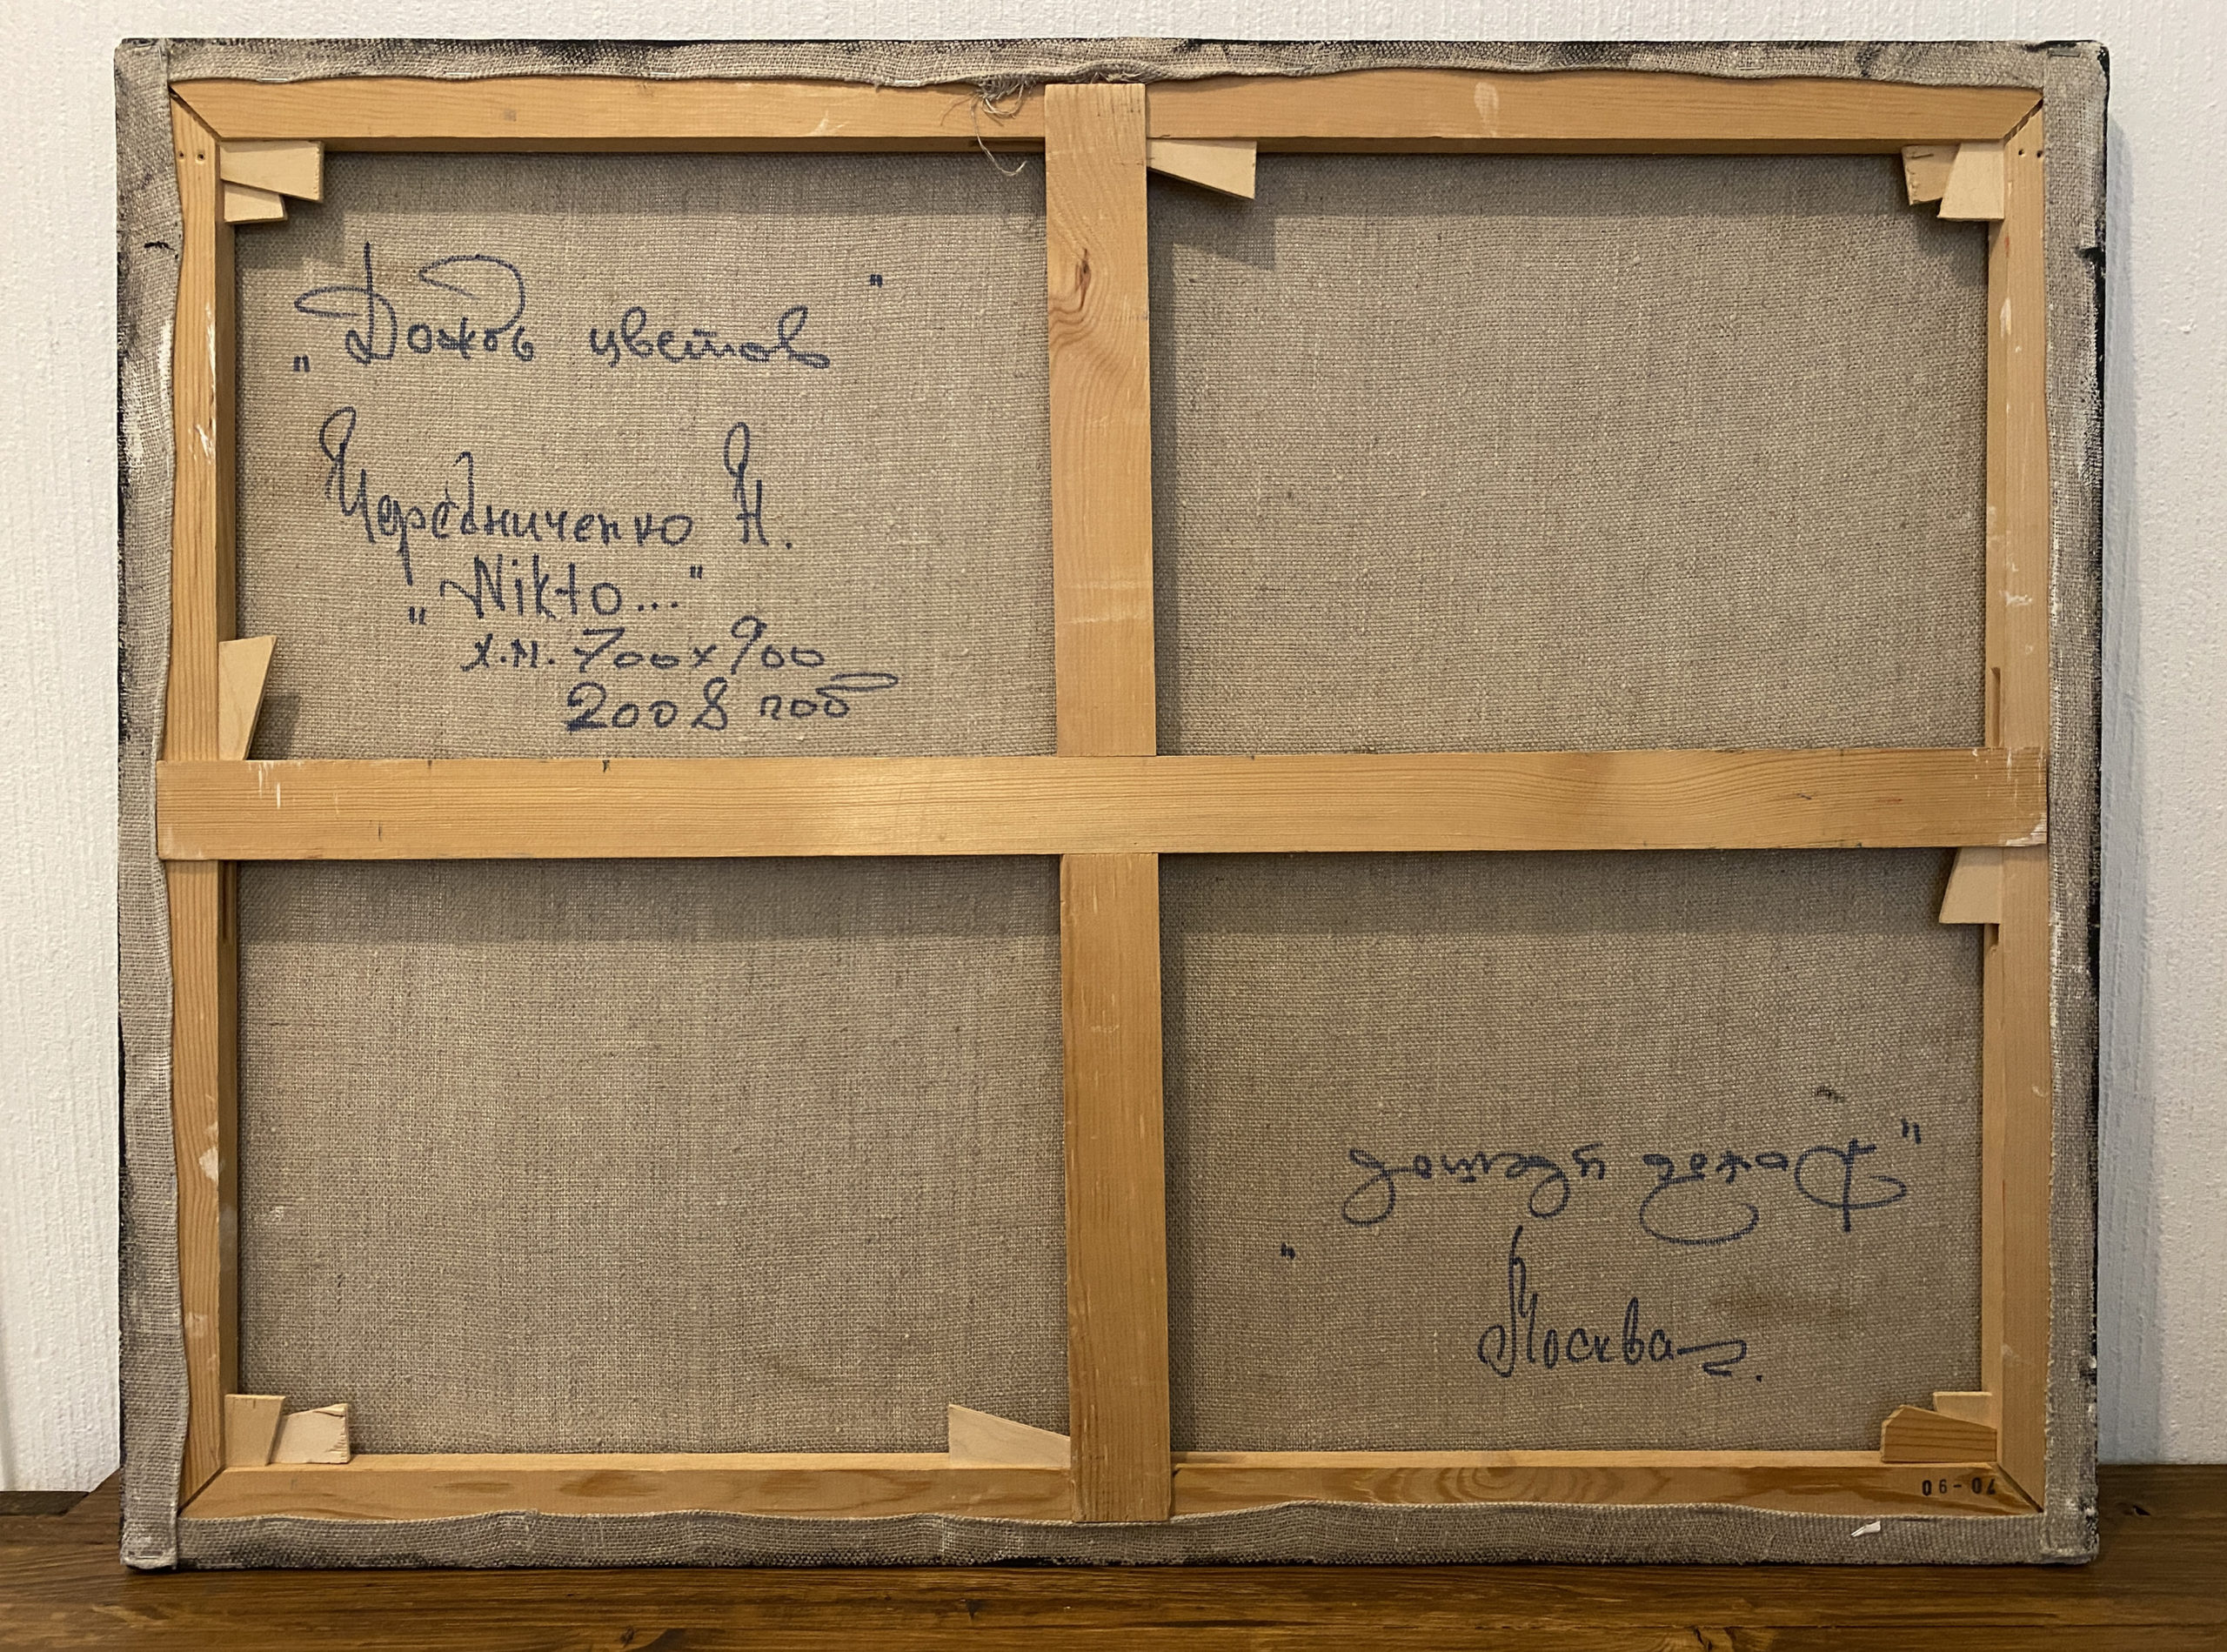 "Дождь цветов"
Чередниченко Н.
"Nikto..."
х.м. 700х900
2008 год
"Дождь цветов"
Москва.
06-04